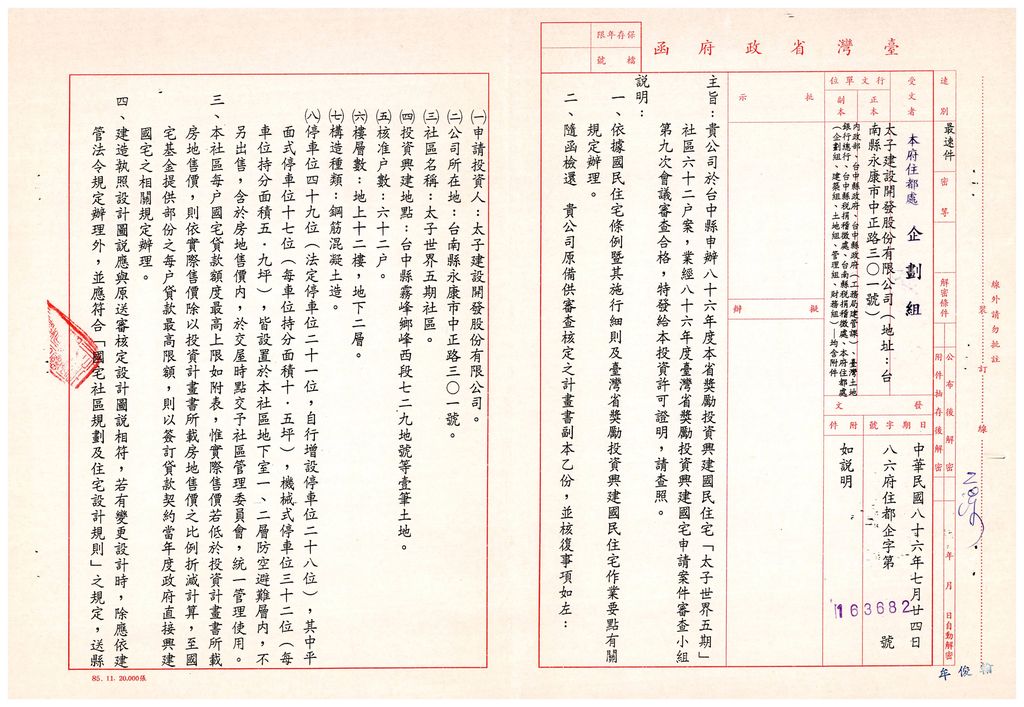 臺灣省政府函
保存年限
檔號
速別
最速件
密等
解密條件
公布後解密
附件抽存後解密
年 月 日自動解密
受文者
本府住都處 企劃組
行文單位
正本
太子建設開發股份有限公司（地址：台南縣永康市中正路三〇一號）
副本
內政部、台中縣政府、台中縣政府（工務局建管課）、臺灣土地
銀行總行、台中縣稅捐稽徵處、台南縣稅捐稽徵處、本府住都處
（企劃組、建築組、土地組、管理組、財務組）－均含附件
發文
日期
中華民國八十六年七月廿四日
字號
八六府住都企字第
163682
號
附件
如說明
批示
擬辦
主旨：貴公司於台中縣申辦八十六年度本省獎勵投資興建國民住宅「太子世界五期」
社區六十二户案，業經八十六年度臺灣省獎勵投資興建國宅申請案件審查小組
第九次會議審查合格，特發給本投資許可證明，請查照。
説明：
一、依據國民住宅條例暨其施行細則及臺灣省獎勵投資興建國民住宅作業要點有關
規定辦理。
二、隨函檢還 貴公司原備供審查核定之計畫書副本乙份，並核復事項如左：
裝訂線
線外請勿批註
㈠申請投資人：太子建設開發股份有限公司。
㈡公司所在地：台南縣永康市中正路三〇一號。
㈢社區名稱：太子世界五期社區。
㈣投資興建地點：台中縣霧峰鄉峰西段七二九地號等壹筆土地。
㈤核准户數：六十二户。
㈥樓層數：地上十二樓，地下二層。
㈦構造種類：鋼筋混凝土造。
㈧停車位四十九位（法定停車位二十一位，自行增設停車位二十八位），其中平
面式停車位十七位（每車位持分面積十．五坪），機械式停車位三十二位（每
車位持分面積五．九坪），皆設置於本社區地下室一、二層防空避難層內，不
另出售，含於房地售價內，於交屋時點交予社區管理委員會，統一管理使用。
三、本社區每户國宅貸款額度最高上限如附表，惟實際售價若低於投資計畫書所載
房地售價，則依實際售價除以投資計畫書所載房地售價之比例折減計算，至國
宅基金提供部份之每户貸款最高限額，則以簽訂貸款契約當年度政府直接興建
國宅之相關規定辦理。
四、建造執照設計圖説應與原送審核定設計圖説相符，若有變更設計時，除應依建
管法令規定辦理外，並應符合「國宅社區規劃及住宅設計規則」之規定，送縣
85. 11. 20.000張